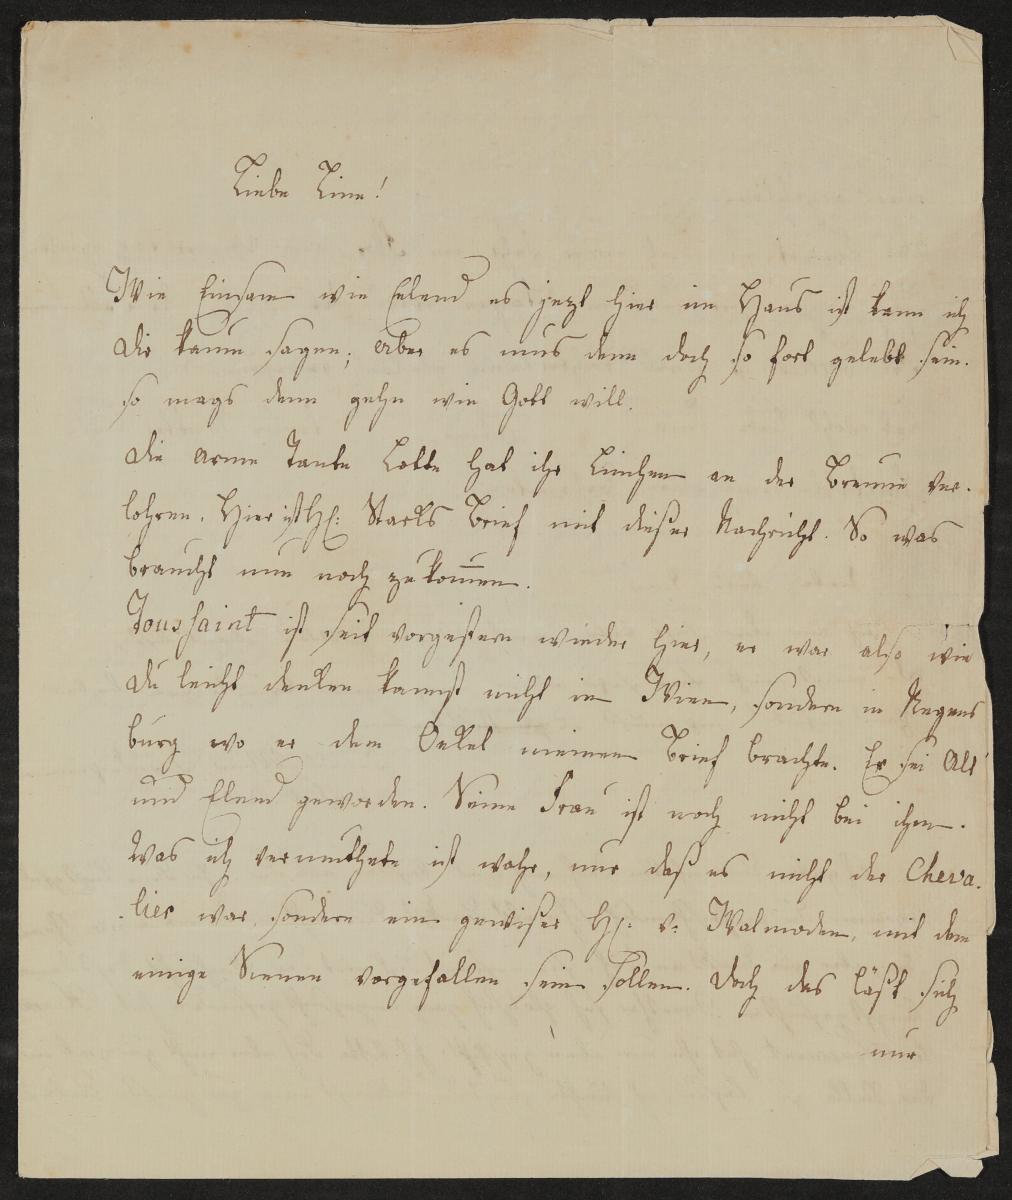 Liebe Line!
Wie Einsam wie Eelend es jezt hier im Haus ist kann ich
dir kaum sagen; aber es mus denn doch so fort gelebt sein.
so mags denn gehn wie Gott will.
die arme Tante Lotte hat ihr Linchen an der Breune ver-
lohren. Hier ist H: Starks Brief mit dießer Nachricht. So was
braucht nun noch zu kom̅en.
Toussaint ist seit vorgestern wieder hier, er war also wie
du leicht denken kannst nicht in Wien, sondern in Regens
burg wo er dem Onkel meinen Brief brachte. Er sei Alt
und Elend geworden. Seine Frau ist noch nicht bei ihm.
Was ich vermuthete ist wahr, nur daß es nicht der Cheva-
-lier war sondern ein gewißer H: v: Walmoden, mit dem
einige Scenen vorgefallen sein sollen. doch das läßt sich
nur